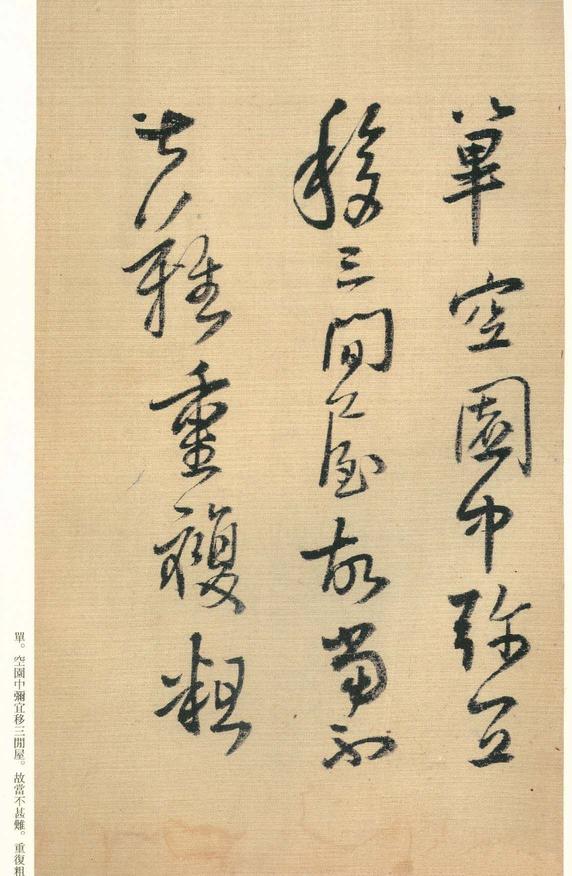 單空園中弥宜
移三間屋故當不
甚難重複粗
單。空園中彌宜移三間屋。故當不甚難。重復粗